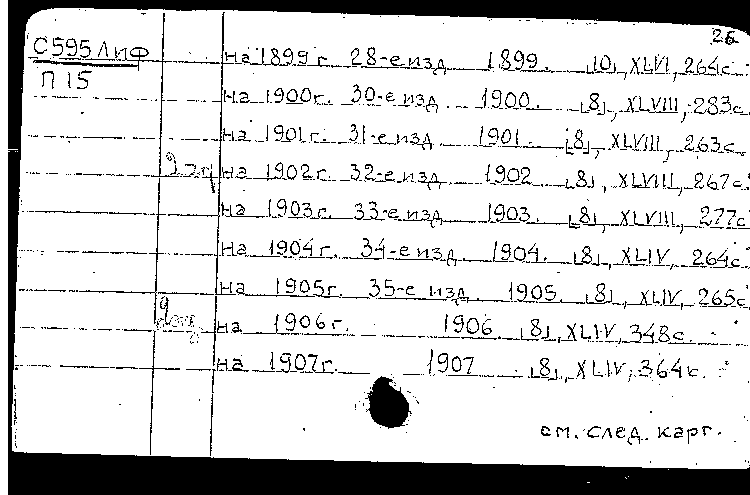 26
С595Лиф на 1899г 28-е изд 1899. [10], XLVI, 264с.
П15
на 1900г. 30-е изд. 1900. [8], XLVIII, 283с.
на 1901г. 31-е изд 1901. [8], XLVIII, 263с.
на 1902г. 32-е изд. 1902 [8], XLVIII, 267с.
на 1903г. 33-е изд 1903. [8], XLVIII, 277с
на 1904г. 34-е изд. 1904. [8], XLIV, 264с.
на 1905г. 35-е изд. 1905. [8], XLIV, 265с.
на 1906г. 1906. [8], XLIV, 348с.
на 1907г. 1907 [8], XLIV, 364с.
см. след. карт.